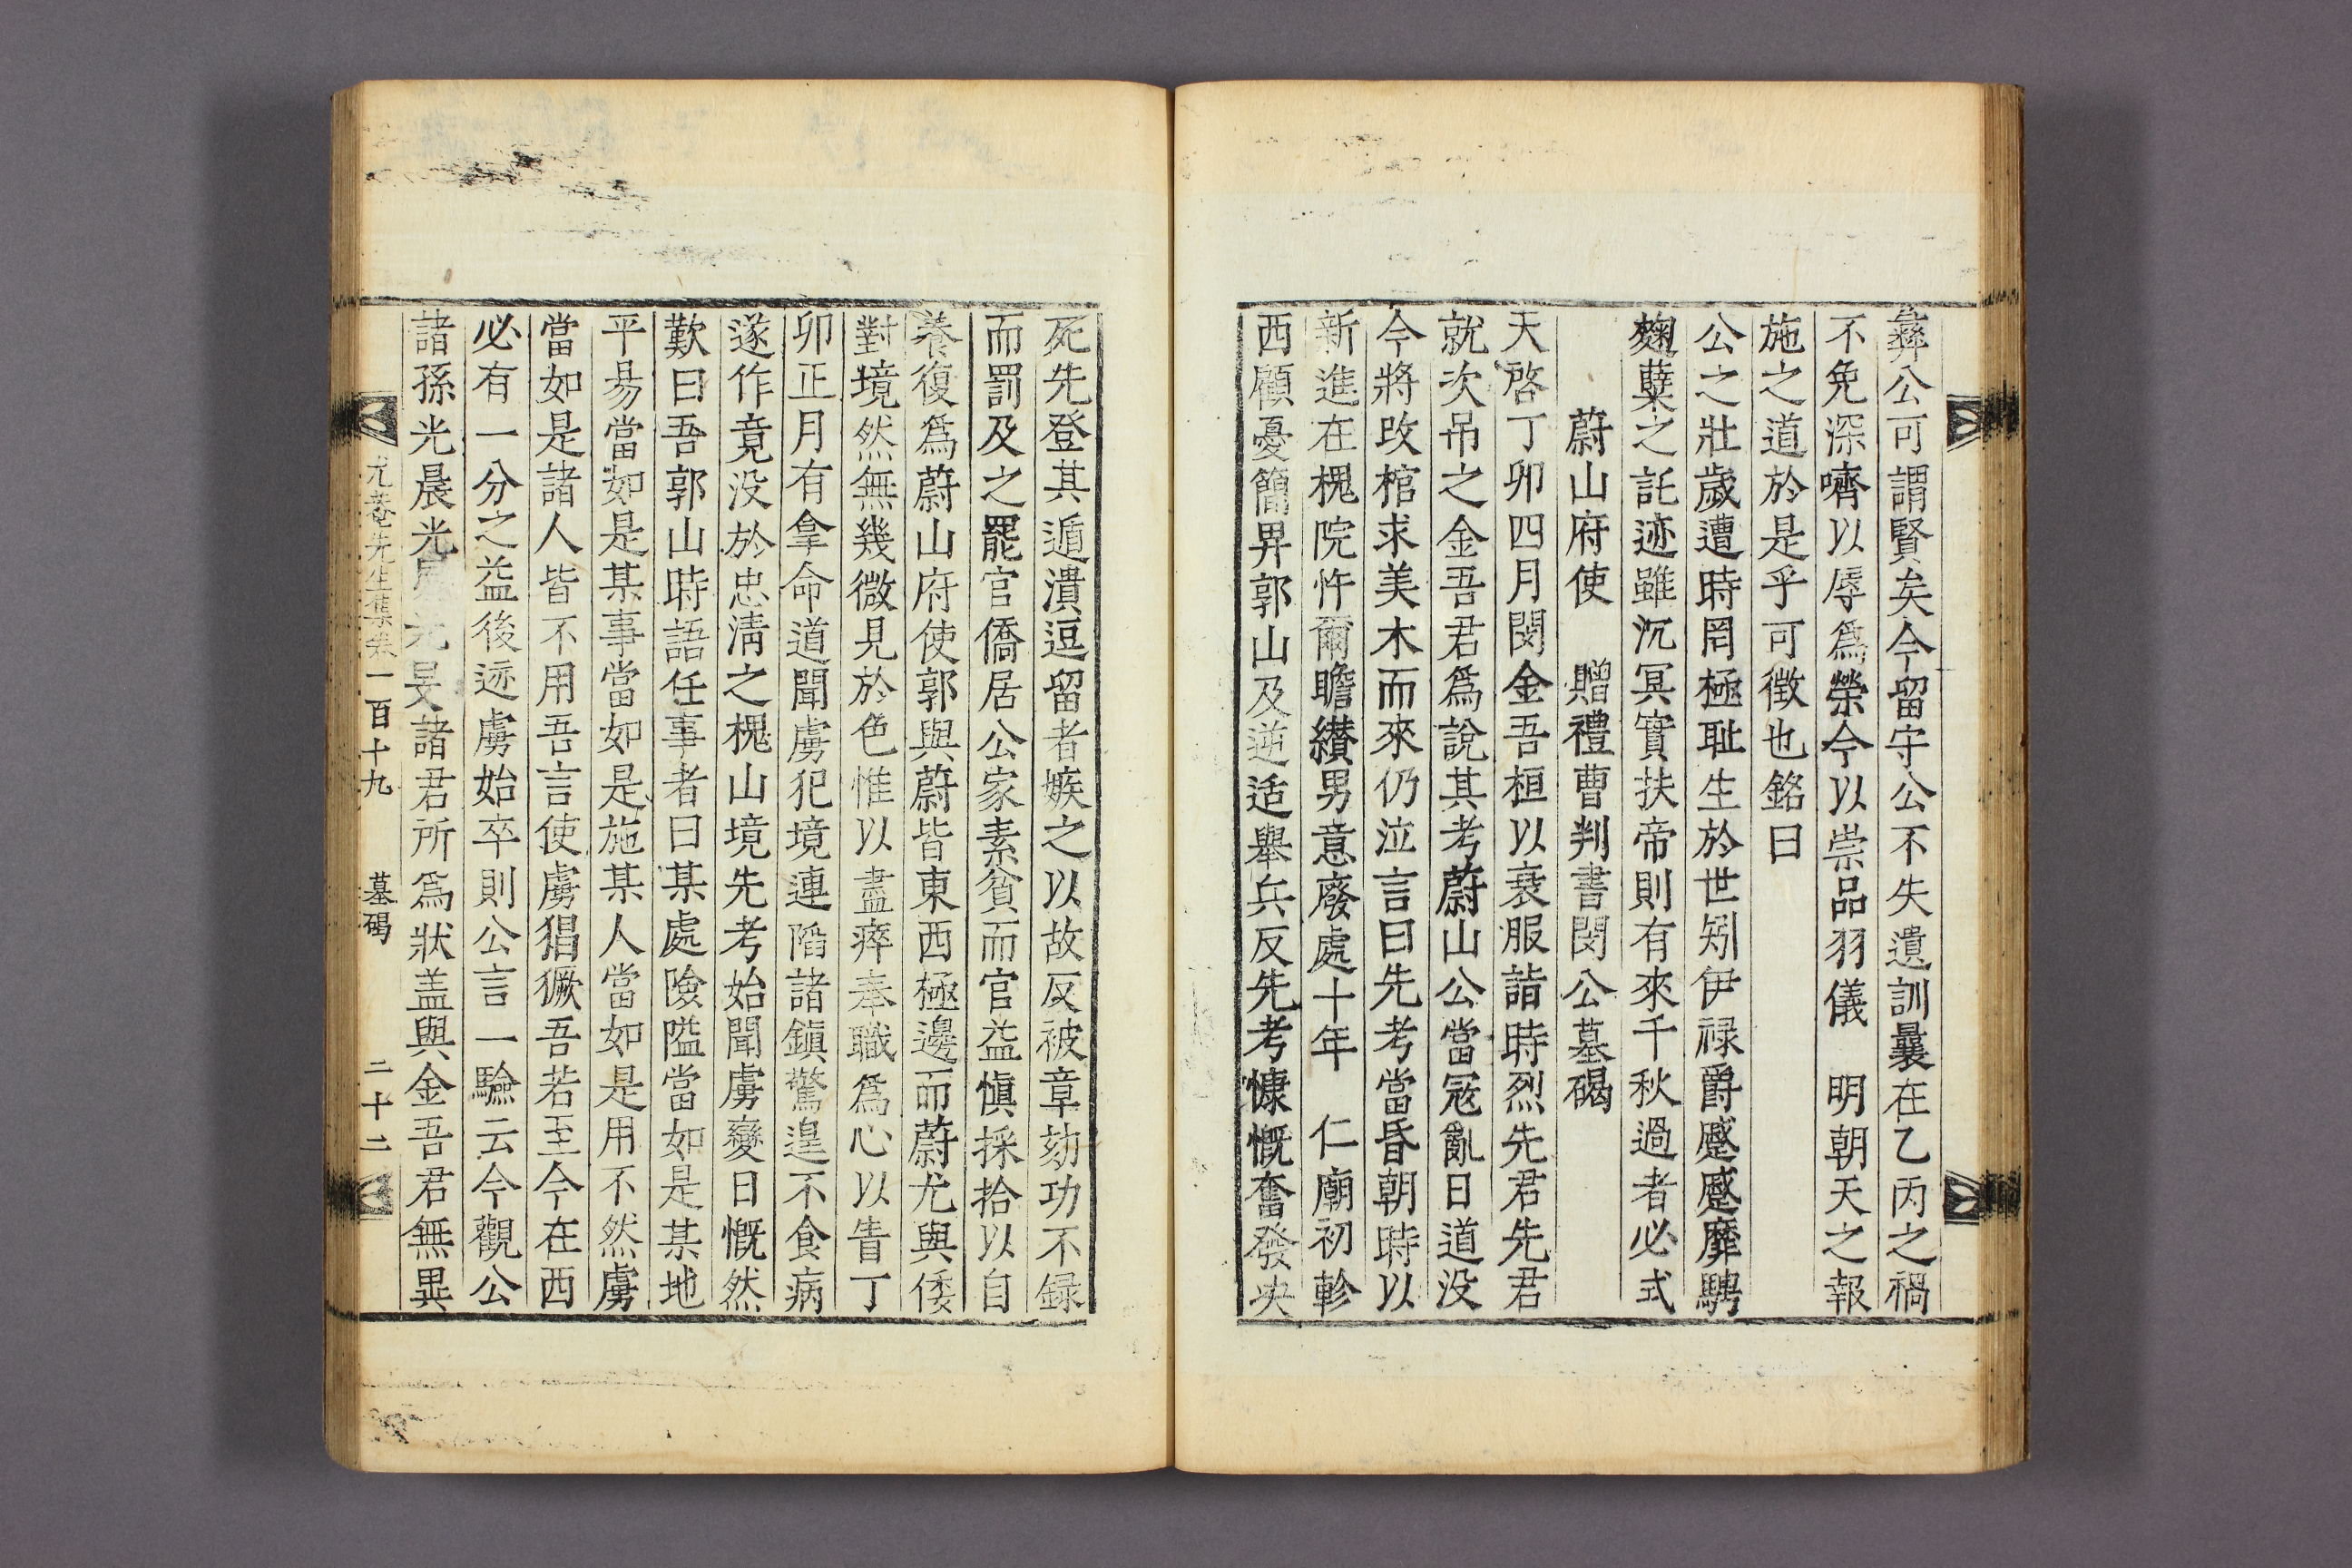 彝公可謂賢矣今留守公不失遺訓曩在乙丙之禍
不免深嚌以辱爲榮今以崇品羽儀　明朝天之報
施之道於是乎可徵也銘曰
公之壯歲遭時罔極耻生於世矧伊祿爵蹙蹙靡騁
麴蘖之託迹雖沉冥實扶帝則有來千秋過者必式
蔚山府使　贈禮曹判書閔公墓碣
天啓丁卯四月閔金吾桓以衰服詣時烈先君先君
就次吊之金吾君爲說其考蔚山公當冦亂日道没
今將改棺求美木而來仍泣言曰先考當昏朝時以
新進在槐院忤爾瞻纉男意廢處十年　仁廟初軫
西顧憂簡畀郭山及逆适舉兵反先考慷慨奮發央
死先登其遁潰逗留者嫉之以故反被章劾功不録
而罰及之罷官僑居公家素貧而官益愼採拾以自
養復爲蔚山府使郭與蔚皆東西極邊而蔚尤與倭
對境然無幾微見於色惟以盡瘁奉職爲心以眚丁
卯正月有拿命道聞虜犯境連陷諸鎭驚遑不食病
遂作竟没於忠淸之槐山境先考始聞虜變日慨然
歎曰吾郭山時語任事者曰某處險隘當如是某地
平易當如是某事當如是施某人當如是用不然虜
當如是諸人皆不用吾言使虜猖獗吾若至今在西
必有一分之益後迹虜始卒則公言一驗云今觀公
諸孫光晨光光旻諸君所爲狀盖與金吾君無異
尤菴先生集卷一百十九　墓碣　二十二